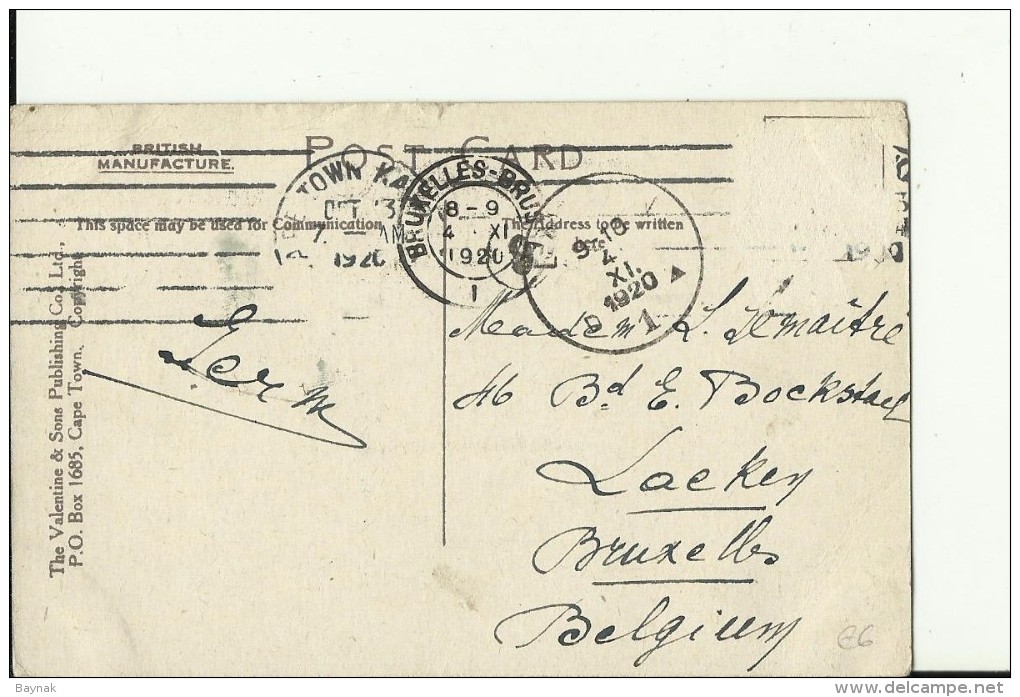 POST CARD
BRITISH
MANUFACTURE.
TOWN KA
OCT 13
AM
1920
BRUXELLES-BRUS
8-9
4 XI
1920
1
9-10
4
XI.
1920
1
This space may be used for Communication
The Address to be written
here
The Valentine & Sons Publishing Co., Ltd.,
P.O. Box 1685, Cape Town. Copyright
Madame L. Lemaitre
46 Bd E. Bockstael
Laeken
Bruxelles
Belgium
€6
Baynak
www.delcampe.net